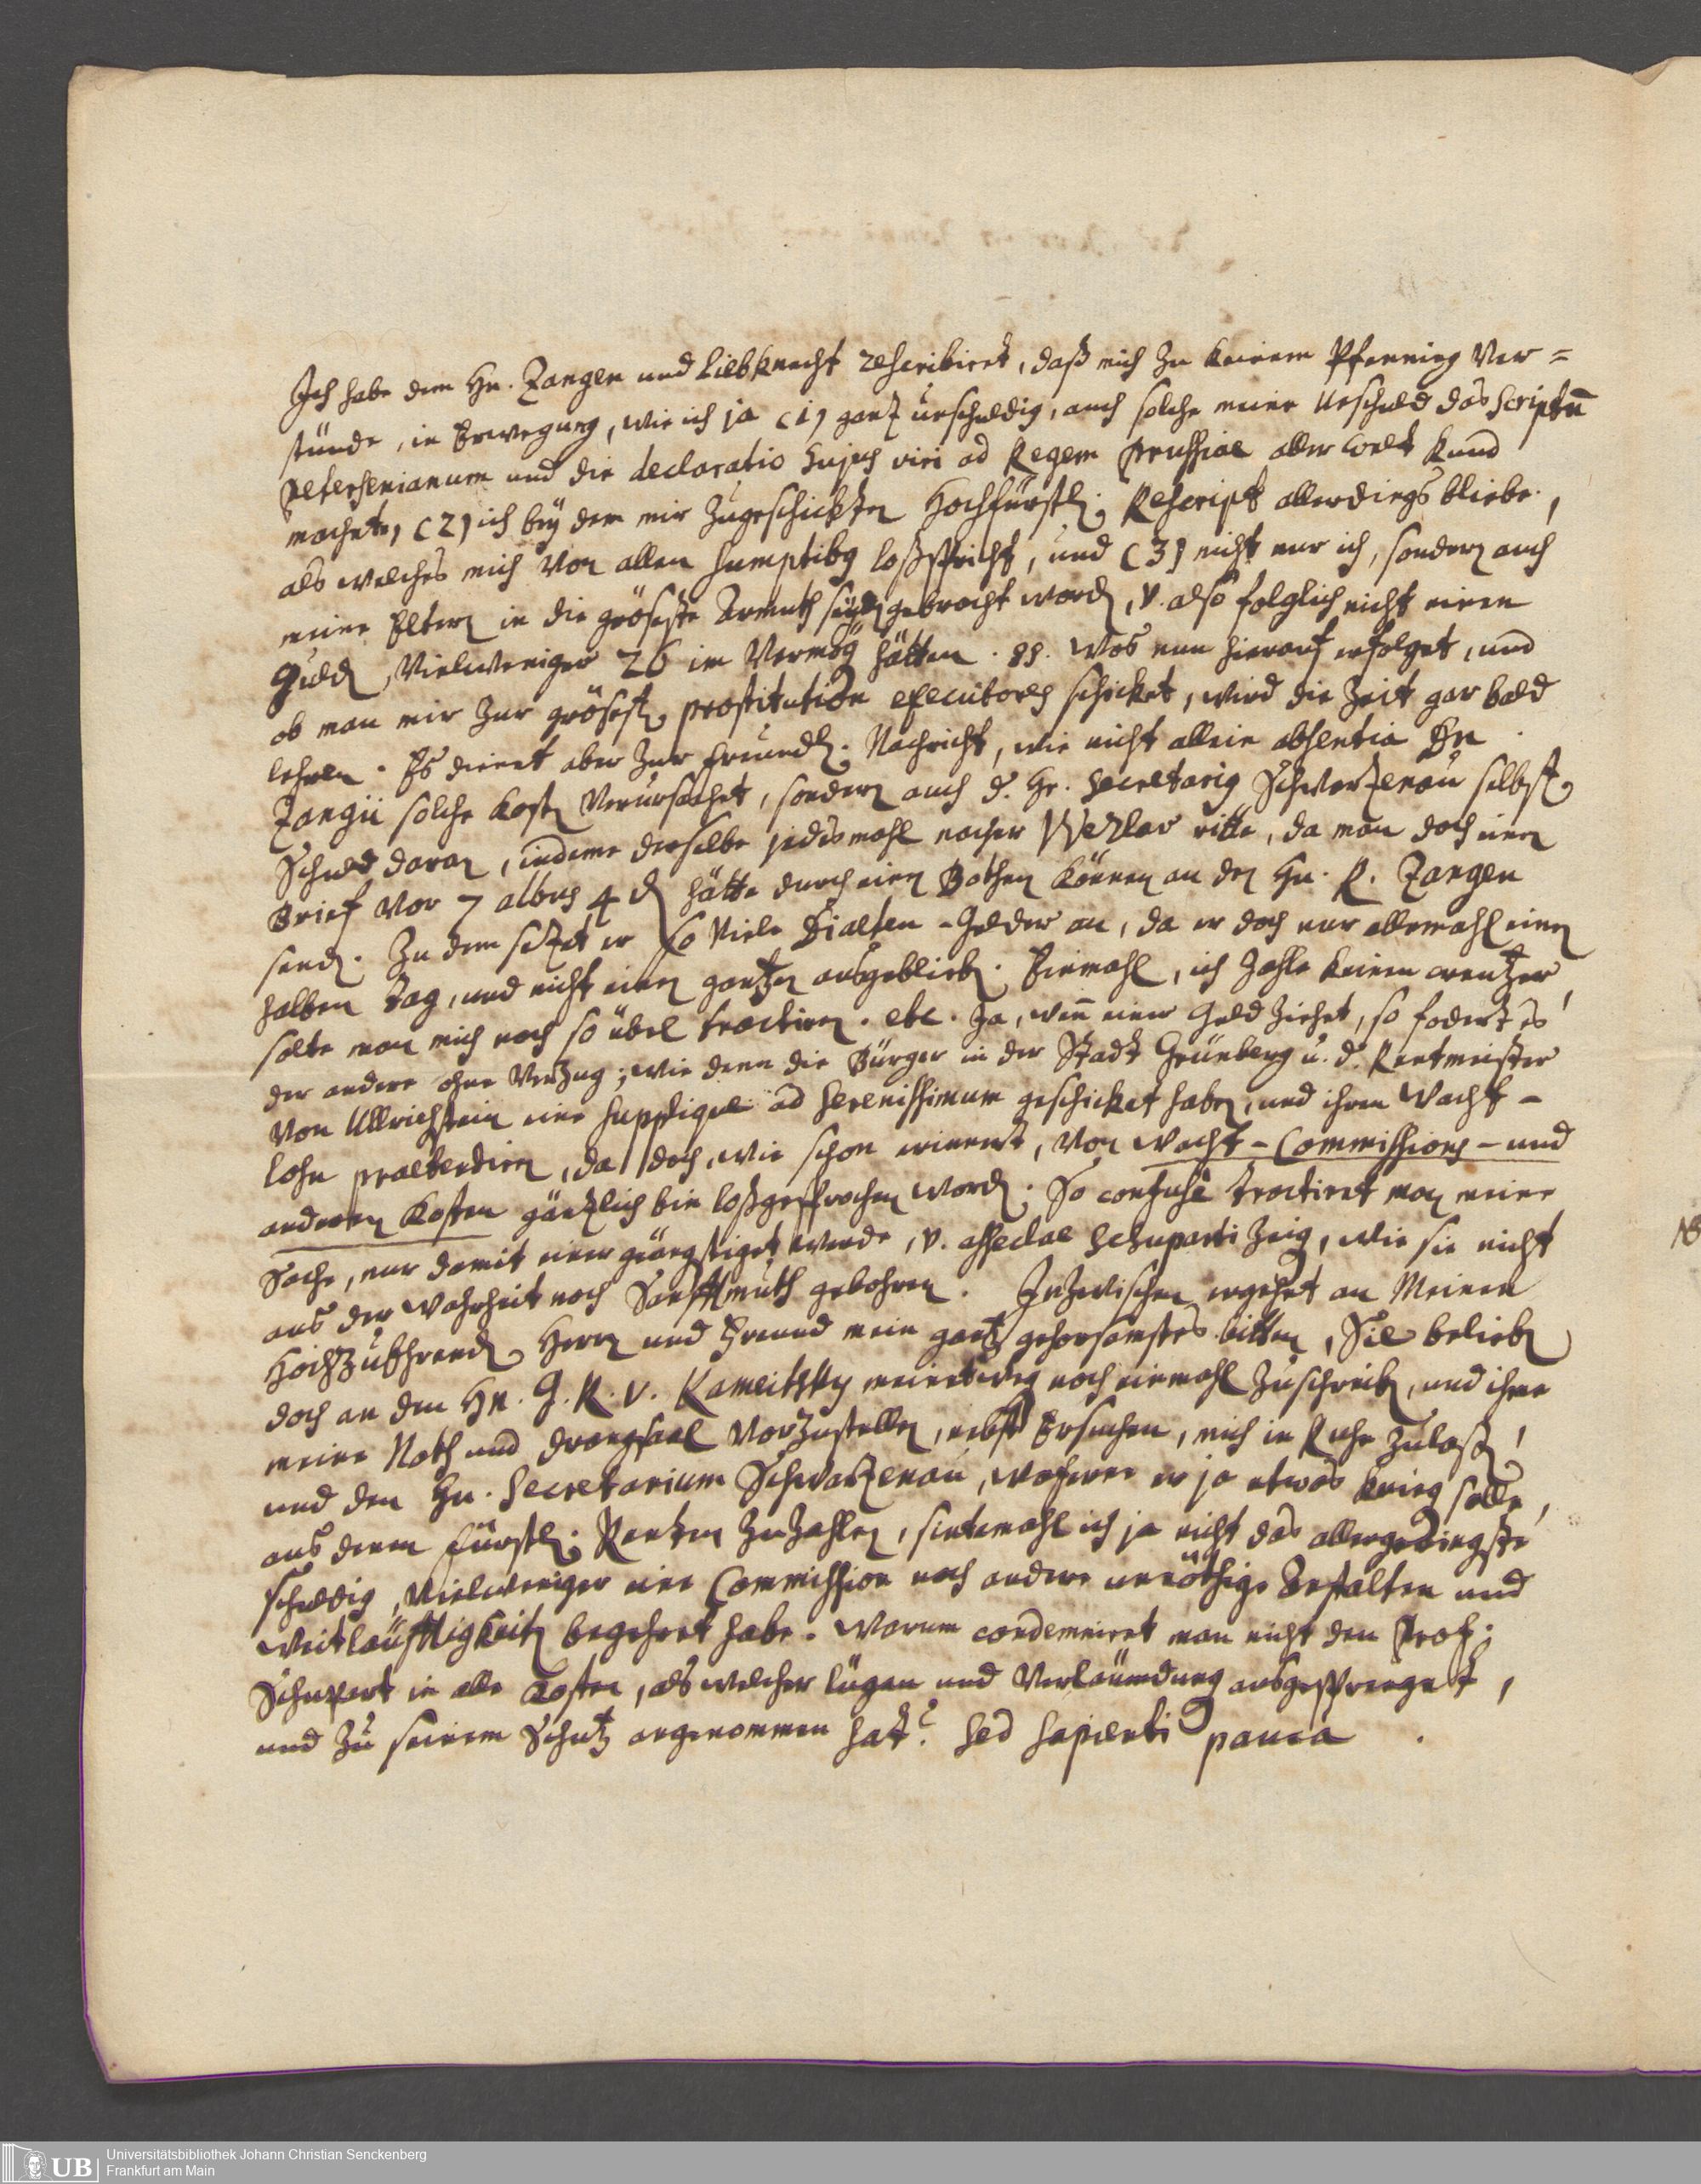 Ich habe dem Hn. Zangen und Liebknecht rescribiret, daß mich zu keinem Pfenning ver=
stünde, in Erwegung, wie ich ja (1) gantz unschuldig, auch solche meine Unschuld das Scriptū
Petersenianum und die declaratio hujus viri ad Regem Prussiae aller Welt kund
machete, (2) ich bey dem mir zugeschickten Hochfürstl. Rescript allerdings bliebe,
als welches mich von allen sumptibus loßspricht, und (3) nicht nur ich, sondern auch
meine Eltern in die gröseste Armuth seyen gebracht worden, u. also folglich nicht einen
Gulden, vielweniger 26 im Vermög hätten. ss. Was nun hierauf erfolget, und
ob man mir zur grösesten prostitution executores schicket, wird die Zeit gar bald
lehren. Es dienet aber zur freundl. Nachricht, wie nicht allein absentia Hn.
Zangii solche Kosten verursachet, sondern auch d. Hr. Secretarius Schwarzenau selbst
Schuld daran, indeme derselbe jedesmahl nacher Wezlar ritte, da man doch einen
Brief vor 7 albus 4 d hätte durch einen Bothen können an den Hn. R. Zangen
senden. Zu dem setzet er so viele Diaeten-Gelder an, da er doch nur allemahl einen
halben Tag, und nicht einen gantzen ausgeblieben. Einmahl, ich zahle keinen creutzer,
solte man mich noch so übel tractiren. etc. Ja, weñ einer Geld ziehet, so fodert es
der andere ohne Verzug; wie denn die Bürger in der Stadt Grünberg u. d. Rentmeister
von Ullrichstein eine supplique ad Serenissimum geschicket haben, und ihren Wacht-
lohn praetendiren, da doch, wie schon erinnert, von Wacht-Commissions-und
anderen Kosten gäntzlich bin loßgesprochen worden. So confusè tractiret man meine
Sache, nur damit einer geängstiget werde, u. asseclae Schuparti zeigen, wie sie nicht
aus der Wahrheit noch Sanfftmuth gebohren. Inzwischen ergehet an Meinen
Hochzuehrenden Herrn und Freund mein gantz gehorsamstes bitten, Sie belieben
doch an den Hn. G. R. v. Kameitsky meinetweg noch einmahl zuschreiben, und ihme
meine Noth und drangsaal vorzustellen, nebst Ersuchen, mich in Ruhe zulaßen,
und den Hn. Secretarium Schwarzenau, wofern er ja etwas krieg solle,
aus denen fürstl. Renten zuzahlen, sintemahl ich ja nicht das allergeringste
schuldig, vielweniger eine Commission noch andere unnöthige Anstalten und
Weitläufftigkeiten begehret habe. Warum condemniret man nicht den Prof.
Schupart in alle Kosten, als welcher lügen und Verläumdung ausgesprenget,
und zu seinem Schutz angenommen hat? sed sapienti pauca.
NB
Universitätsbibliothek Johann Christian Senckenberg
Frankfurt am Main
UB